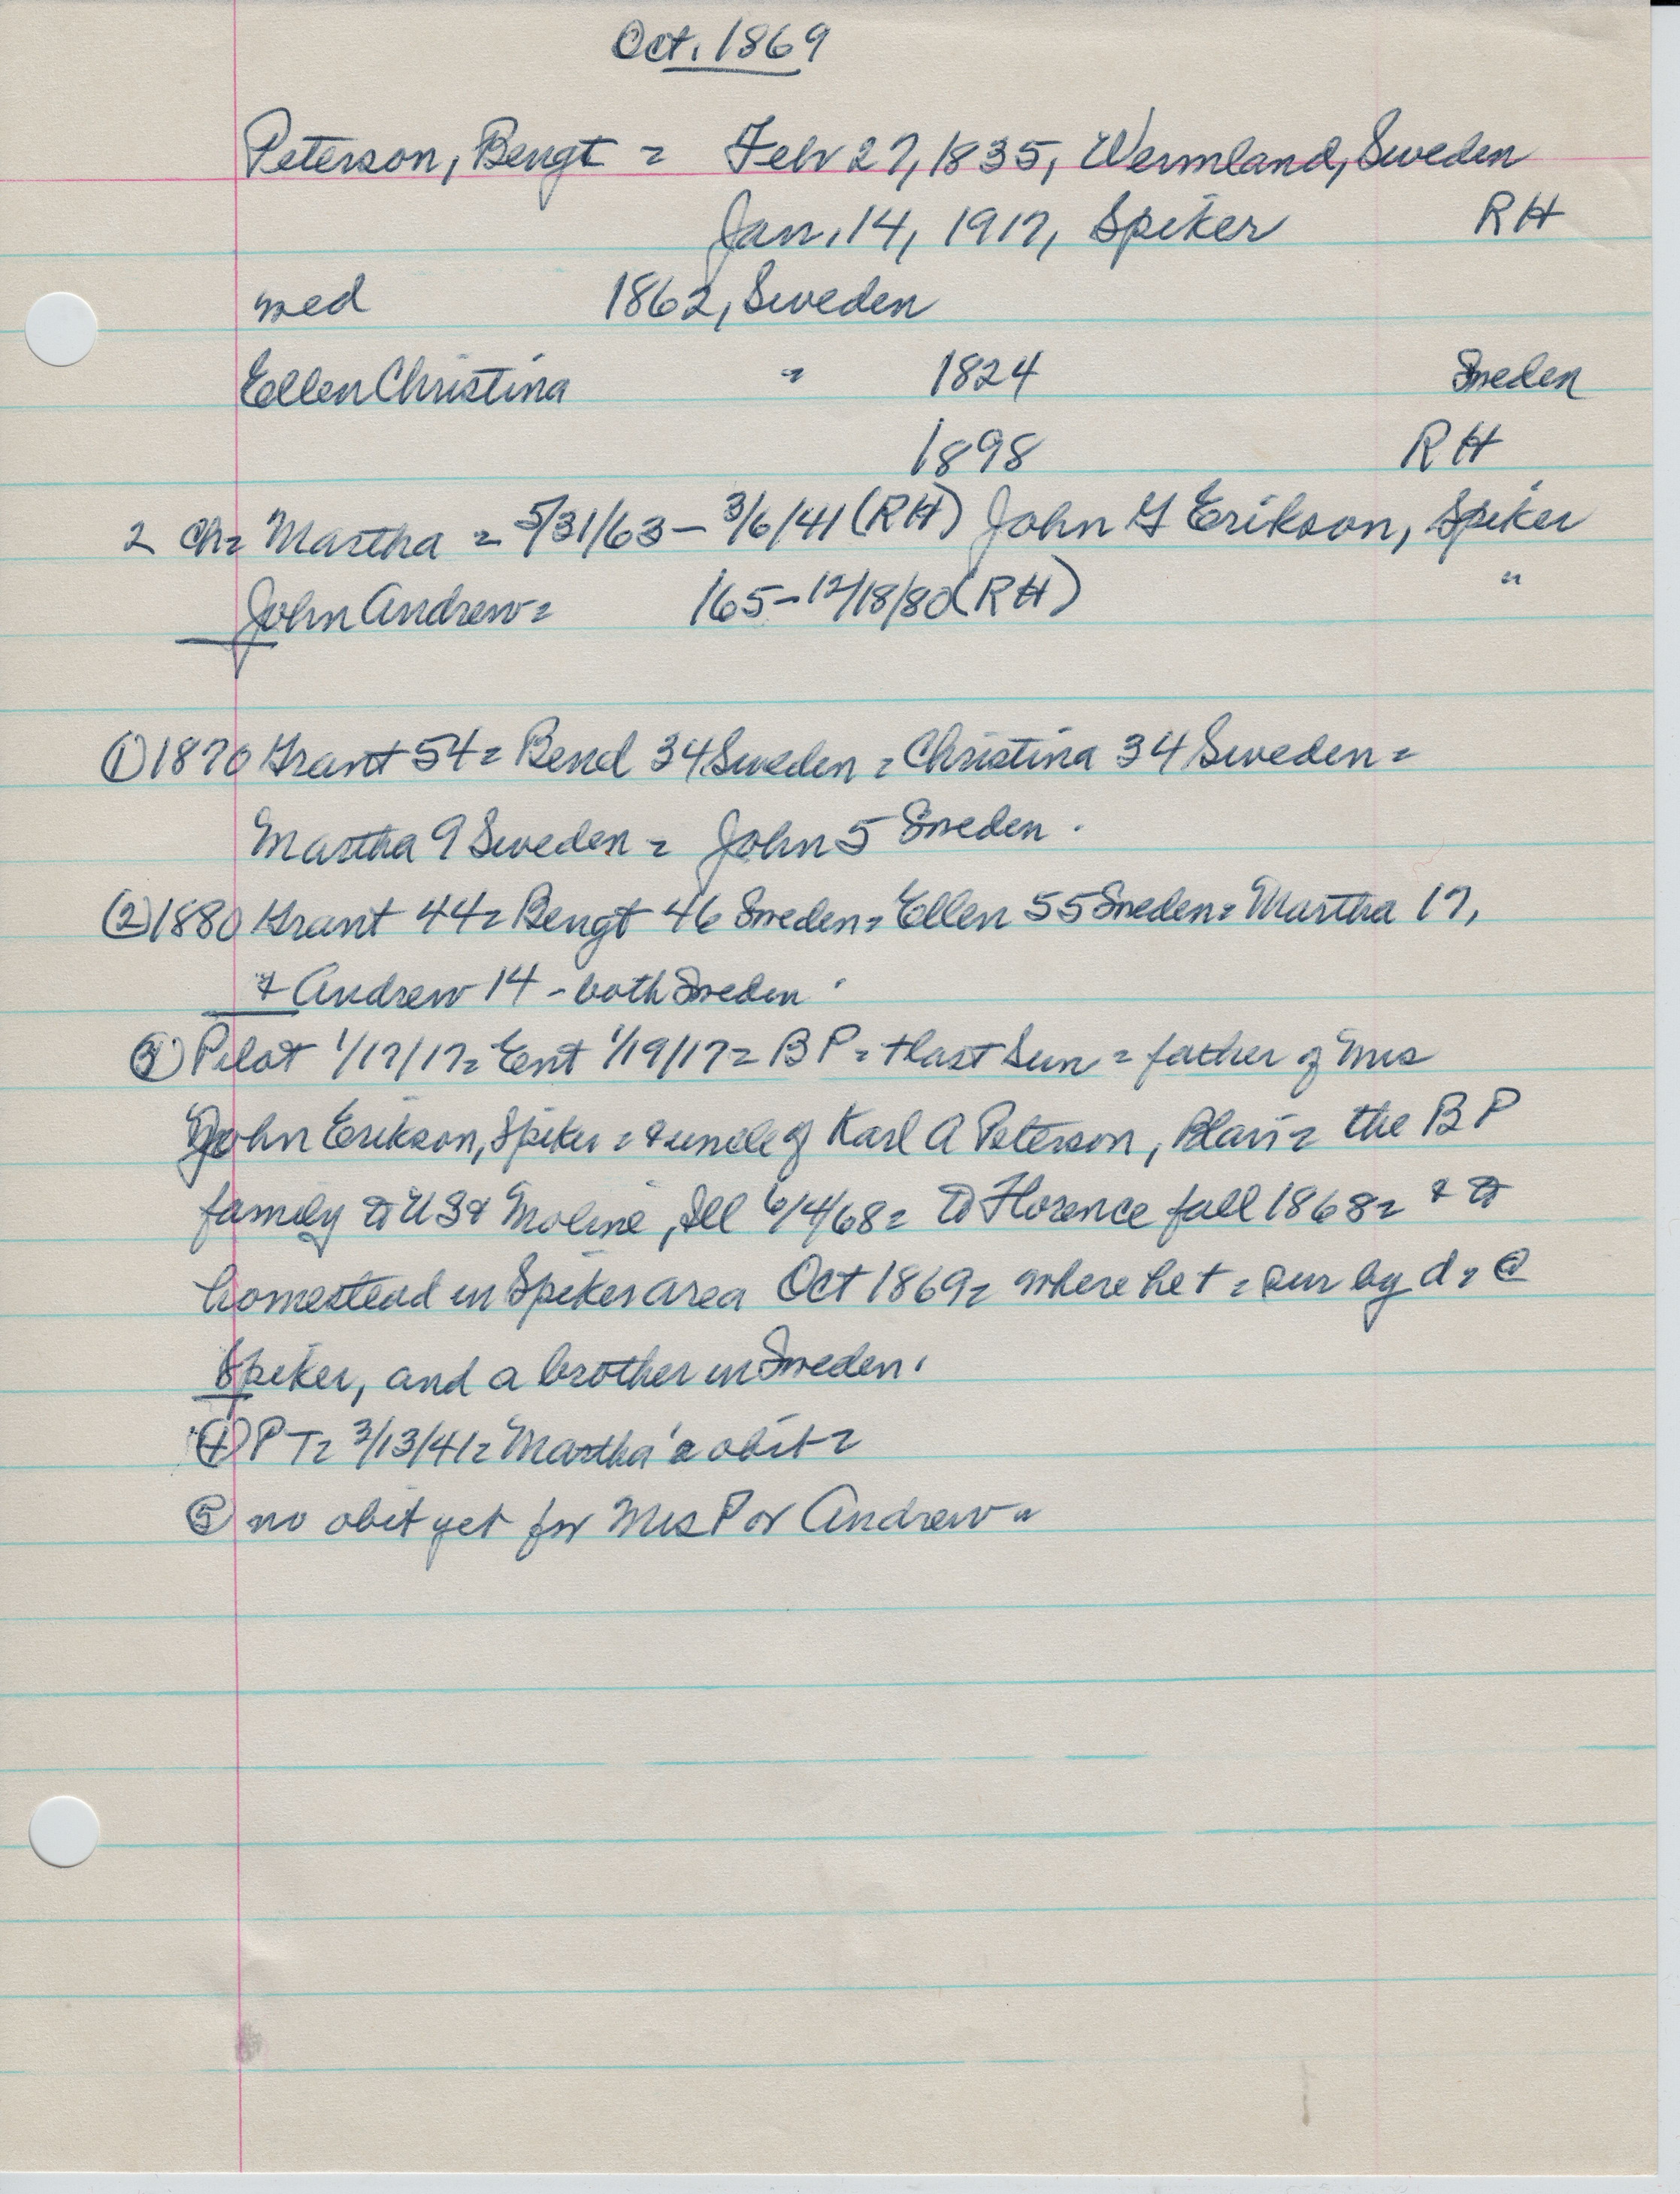 Oct. 1869
Peterson, Bengt = Feb 27, 1835, Wermland, Sweden
Jan. 14, 1917, Spiker RH
med 1862, Sweden
Ellen Christina = 1824 Sweden
1898 RH
2 ch= Martha = 5/31/63 - 3/6/41 (RH) John G Erikson, Spiker
John Andrew= /65 - 12/18/80 (RH) "
(1) 1870 Grant 54= Bend 34 Sweden = Christina 34 Sweden =
Martha 9 Sweden = John 5 Sweden.
(2) 1880 Grant 44= Bengt 46 Sweden= Ellen 55 Sweden= Martha 17,
& Andrew 14 - both Sweden.
(3) Pilot 1/17/17= Ent 1/19/17= BP = + last Sun = father of Mrs
John Erikson, Spiker = & uncle of Karl A Peterson, Blair= the BP
family to US & Moline, Ill 6/4/68= to Florence fall 1868= & to
homestead in Spiker area Oct 1869= where he + = sur by d = @
Spiker, and a brother in Sweden.
(4) PT= 3/13/41= Martha's obit =
(5) no obit yet for Mrs P or Andrew =